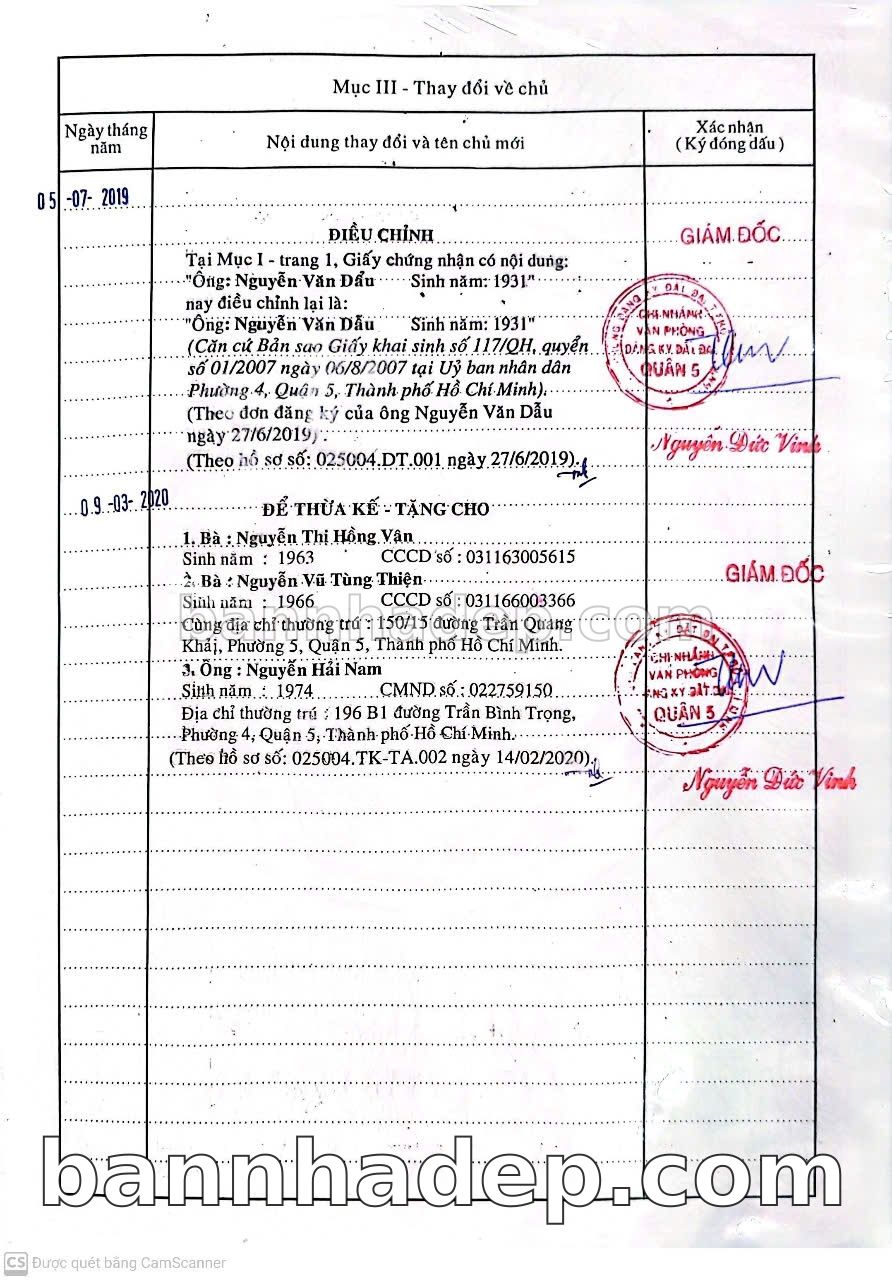 Mục III - Thay đổi về chủ
Ngày tháng năm
Nội dung thay đổi và tên chủ mới
Xác nhận
(Ký đóng dấu)
05 -07- 2019
ĐIỀU CHỈNH
GIÁM ĐỐC
Tại Mục I - trang 1, Giấy chứng nhận có nội dung:
"Ông: Nguyễn Văn Dấu Sinh năm: 1931"
nay điều chỉnh lại là:
"Ông: Nguyễn Văn Dẫu Sinh năm: 1931"
(Căn cứ Bản sao Giấy khai sinh số 117/QH, quyển
số 01/2007 ngày 06/8/2007 tại Uỷ ban nhân dân
Phường 4, Quận 5, Thành phố Hồ Chí Minh).
(Theo đơn đăng ký của ông Nguyễn Văn Dẫu
ngày 27/6/2019).
(Theo hồ sơ số: 025004.DT.001 ngày 27/6/2019).
CHI NHÁNH
VĂN PHÒNG
ĐĂNG KÝ ĐẤT ĐAI
QUẬN 5
Nguyễn Đức Vinh
09 -03- 2020
ĐỂ THỪA KẾ - TẶNG CHO
1. Bà : Nguyễn Thị Hồng Vân
Sinh năm : 1963 CCCD số : 031163005615
2. Bà : Nguyễn Vũ Tùng Thiện
Sinh năm : 1966 CCCD số : 031166003366
Cùng địa chỉ thường trú : 150/15 đường Trần Quang
Khải, Phường 5, Quận 5, Thành phố Hồ Chí Minh.
3. Ông : Nguyễn Hải Nam
Sinh năm : 1974 CMND số : 022759150
Địa chỉ thường trú : 196 B1 đường Trần Bình Trọng,
Phường 4, Quận 5, Thành phố Hồ Chí Minh.
(Theo hồ sơ số: 025004.TK-TA.002 ngày 14/02/2020).
GIÁM ĐỐC
CHI NHÁNH
VĂN PHÒNG
ĐĂNG KÝ ĐẤT ĐAI
QUẬN 5
Nguyễn Đức Vinh
bannhadep.com
bannhadep.com
CS Được quét bằng CamScanner